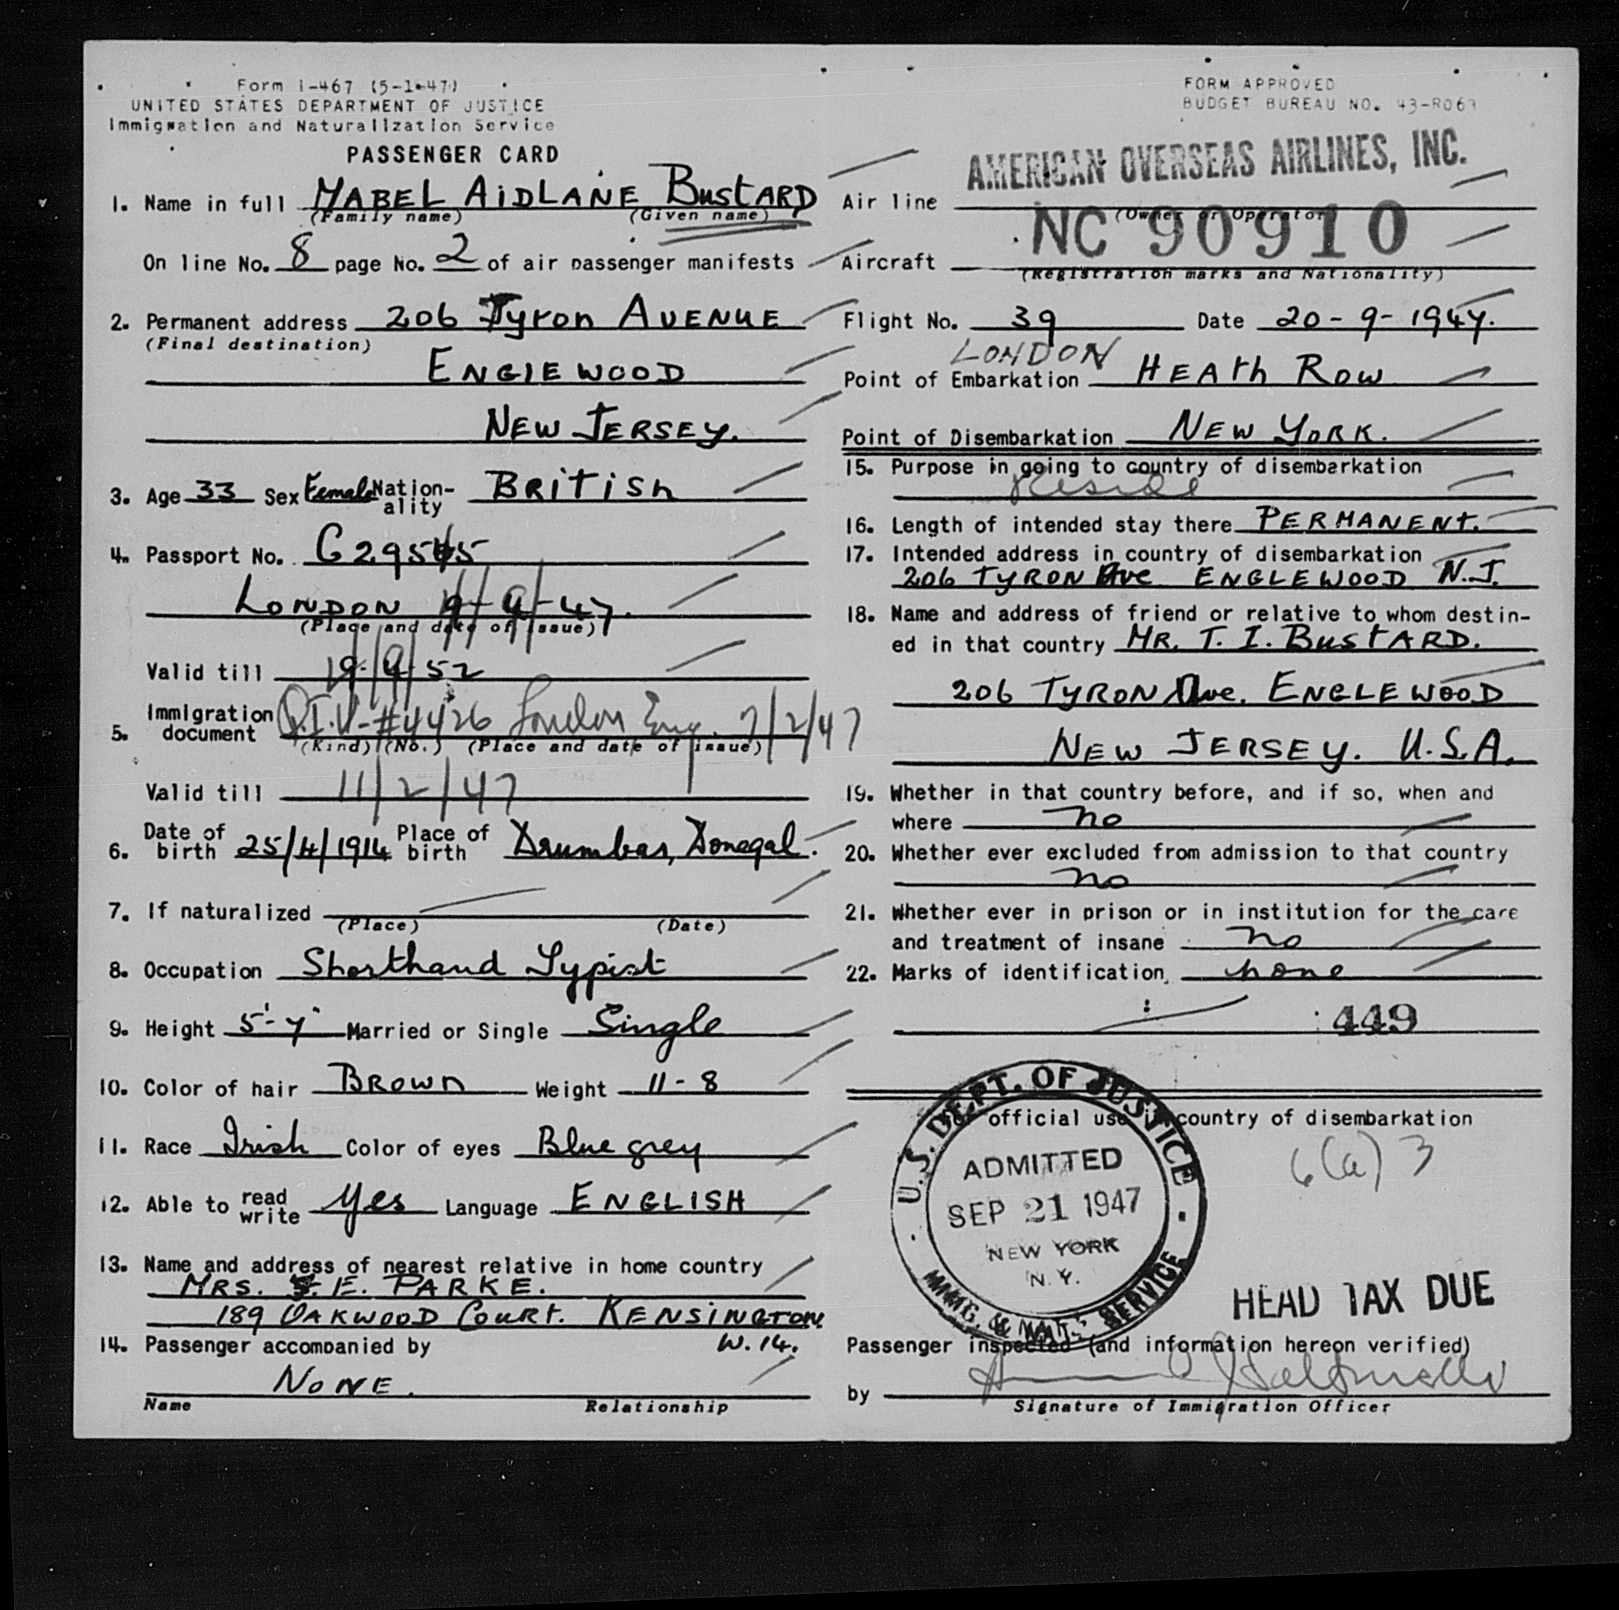 Form I-467 (5-1-47)
UNITED STATES DEPARTMENT OF JUSTICE
Immigration and Naturalization Service
PASSENGER CARD
1. Name in full MABEL AIDLANE BUSTARD
(Family name) (Given name)
On line No. 8 page No. 2 of air passenger manifests
2. Permanent address 206 Tyron AVENUE
(Final destination)
ENGLEWOOD
NEW JERSEY.
3. Age 33 Sex Female Nationality BRITISH
4. Passport No. C 29545
LONDON 9-4-47.
(Place and date of issue)
Valid till 9-4-52
5. Immigration document Q.I.V-#4426 London Eng. 7/2/47
(Kind) (No.) (Place and date of issue)
Valid till 11/2/47
6. Date of birth 25/4/1914 Place of birth Drumbar, Donegal.
7. If naturalized
(Place) (Date)
8. Occupation Shorthand Typist
9. Height 5'-7" Married or Single Single
10. Color of hair BROWN Weight 11-8
11. Race Irish Color of eyes Blue grey
12. Able to read write Yes Language ENGLISH
13. Name and address of nearest relative in home country
MRS. E. PARKE.
189 OAKWOOD COURT. KENSINGTON
W.14.
14. Passenger accompanied by
NONE.
Name Relationship
FORM APPROVED
BUDGET BUREAU NO. 43-R063
AMERICAN OVERSEAS AIRLINES, INC.
Air line
(Owner or Operator)
NC 90910
Aircraft
(Registration marks and Nationality)
Flight No. 39 Date 20-9-1947.
LONDON
Point of Embarkation HEATH ROW
Point of Disembarkation NEW YORK.
15. Purpose in going to country of disembarkation
reside
16. Length of intended stay there PERMANENT.
17. Intended address in country of disembarkation
206 TYRON Ave ENGLEWOOD N.J.
18. Name and address of friend or relative to whom destin-
ed in that country MR. T. I. BUSTARD.
206 TYRON Ave. ENGLEWOOD
NEW JERSEY. U.S.A.
19. Whether in that country before, and if so, when and
where no
20. Whether ever excluded from admission to that country
no
21. Whether ever in prison or in institution for the care
and treatment of insane no
22. Marks of identification none
449
official use country of disembarkation
6(a) 3
U.S. DEPT. OF JUSTICE
ADMITTED
SEP 21 1947
NEW YORK
N.Y.
IMMIG. & NAT'Z SERVICE
HEAD TAX DUE
Passenger inspected (and information hereon verified)
by
Signature of Immigration Officer